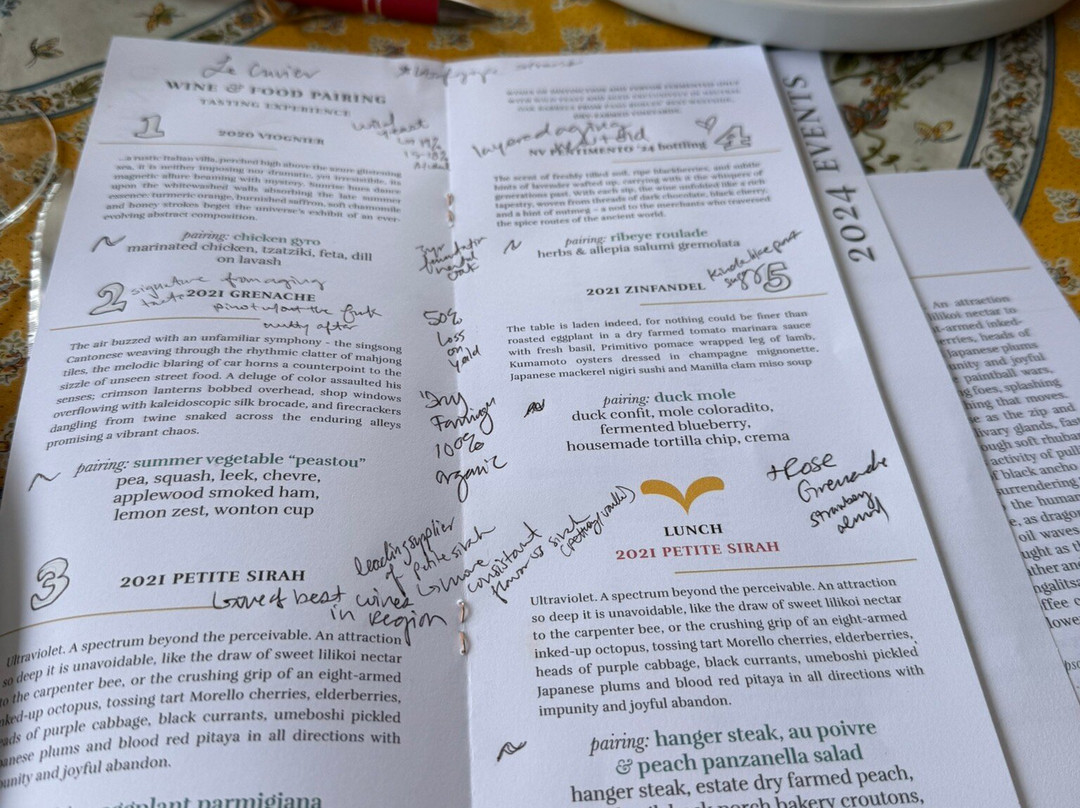 Le Cuvier
WINE & FOOD PAIRING
TASTING EXPERIENCE
1
2020 VIOGNIER
wild
yeast
...a rustic Italian villa, perched high above the azure glistening
sea, it is neither imposing nor dramatic, yet irresistible, its
magnetic allure beaming with mystery. Sunrise hues dance
upon the whitewashed walls absorbing the late summer
essence: turmeric orange, burnished saffron, soft chamomile
and honey strokes beget the universe's exhibit of an ever-
evolving abstract composition.
pairing: chicken gyro
marinated chicken, tzatziki, feta, dill
on lavash
2
signature
2021 GRENACHE
pinot w/out the funk
nutty after
The air buzzed with an unfamiliar symphony - the singsong
Cantonese weaving through the rhythmic clatter of mahjong
tiles, the melodic blaring of car horns a counterpoint to the
sizzle of unseen street food. A deluge of color assaulted his
senses; crimson lanterns bobbed overhead, shop windows
overflowing with kaleidoscopic silk brocade, and firecrackers
dangling from twine snaked across the enduring alleys
promising a vibrant chaos.
pairing: summer vegetable "peastou"
pea, squash, leek, chevre,
applewood smoked ham,
lemon zest, wonton cup
50%
loss
on
yield
Dry
Farming
100%
organic
3
2021 PETITE SIRAH
leading supplier
of petite sirah
↳ one of best wines
in region
↳ more
consistant
flavor vs sirah
Ultraviolet. A spectrum beyond the perceivable. An attraction
so deep it is unavoidable, like the draw of sweet lilikoi nectar
to the carpenter bee, or the crushing grip of an eight-armed
inked-up octopus, tossing tart Morello cherries, elderberries,
heads of purple cabbage, black currants, umeboshi pickled
Japanese plums and blood red pitaya in all directions with
impunity and joyful abandon.
eggplant parmigiana
WITH WILD YEAST AND AGED EXCLUSIVELY IN NEUTRAL
OAK BARRELS FROM PASO ROBLES' BEST WESTSIDE,
DRY-FARMED VINEYARDS.
layered aging
4
NV SENTIMENTO '24 bottling
The scent of freshly tilled soil, ripe blackberries, and subtle
hints of lavender wafted up, carrying with it the whispers of
generations past. With each sip, the wine unfolded like a rich
tapestry, woven from threads of dark chocolate, black cherry,
and a hint of nutmeg – a nod to the merchants who traversed
the spice routes of the ancient world.
pairing: ribeye roulade
herbs & allepia salumi gremolata
Kinda like port
sugar
5
2021 ZINFANDEL
The table is laden indeed, for nothing could be finer than
roasted eggplant in a dry farmed tomato marinara sauce
with fresh basil, Primitivo pomace wrapped leg of lamb,
Kumamoto oysters dressed in champagne mignonette,
Japanese mackerel nigiri sushi and Manilla clam miso soup
pairing: duck mole
duck confit, mole coloradito,
fermented blueberry,
housemade tortilla chip, crema
+ Rose
Grenache
strawberry
almond
LUNCH
2021 PETITE SIRAH
Ultraviolet. A spectrum beyond the perceivable. An attraction
so deep it is unavoidable, like the draw of sweet lilikoi nectar
to the carpenter bee, or the crushing grip of an eight-armed
inked-up octopus, tossing tart Morello cherries, elderberries,
heads of purple cabbage, black currants, umeboshi pickled
Japanese plums and blood red pitaya in all directions with
impunity and joyful abandon.
pairing: hanger steak, au poivre
& peach panzanella salad
hanger steak, estate dry farmed peach,
porch bakery croutons,
2024 EVENTS
An attraction
lilikoi nectar to
t-armed inked-
erries, heads of
Japanese plums